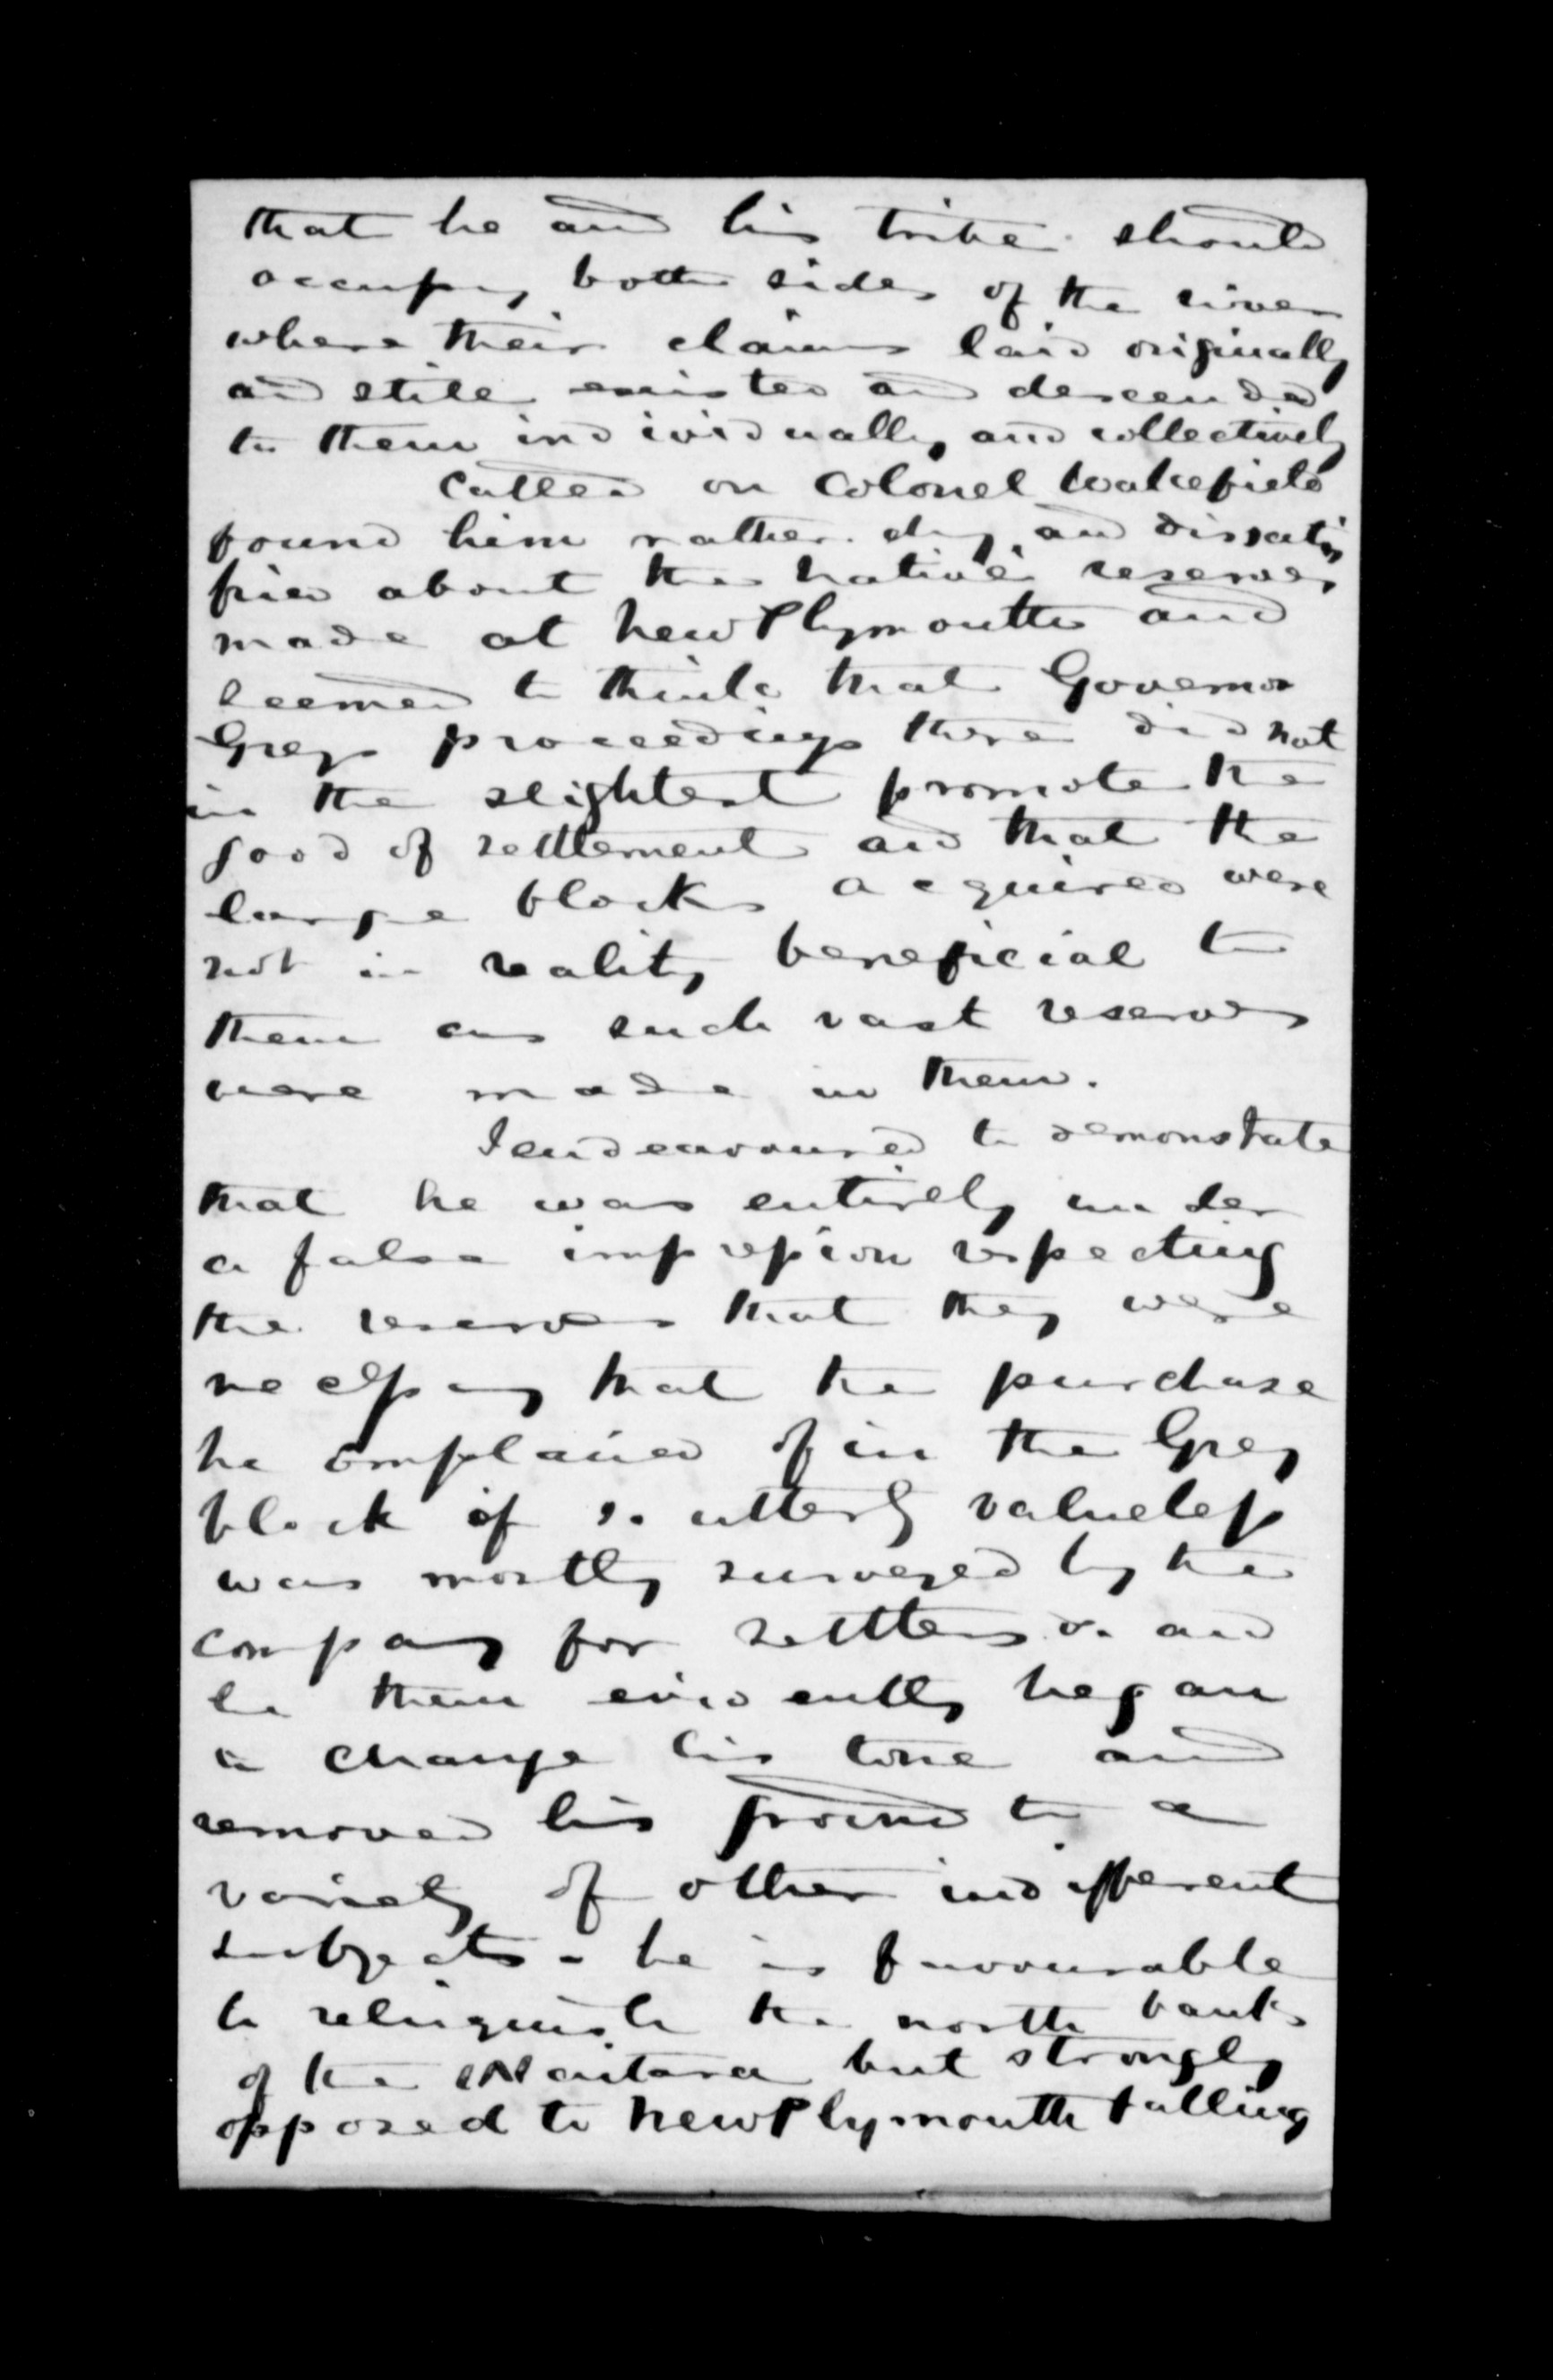 that he and his tribe should
occupy both sides of the river
where their claims laid originally
and still existed and descended
to them individually and collectively
Called on Colonel Wakefield
found him rather dry and dissatis
fied about the native reserves
made at New Plymouth and
seemed to think that Governor
Greys proceedings there did not
in the slightest promote the
good of settlement and that the
large blocks acquired were
not in reality beneficial to
them as such vast reserves
were made in them.
I endeavoured to demonstrate
that he was entirely under
a false impression respecting
the reserves that they were
necessary that the purchase
he complained of in the Grey
block if so utterly valueless
was mostly surveyed by the
company for settlers &c and
he then evidently began
to change his tone and
removed his ground to a
variety of other indifferent
subjects - he is favourable
to relinquish the north bank
of the Waitara but strongly
opposed to New Plymouth falling